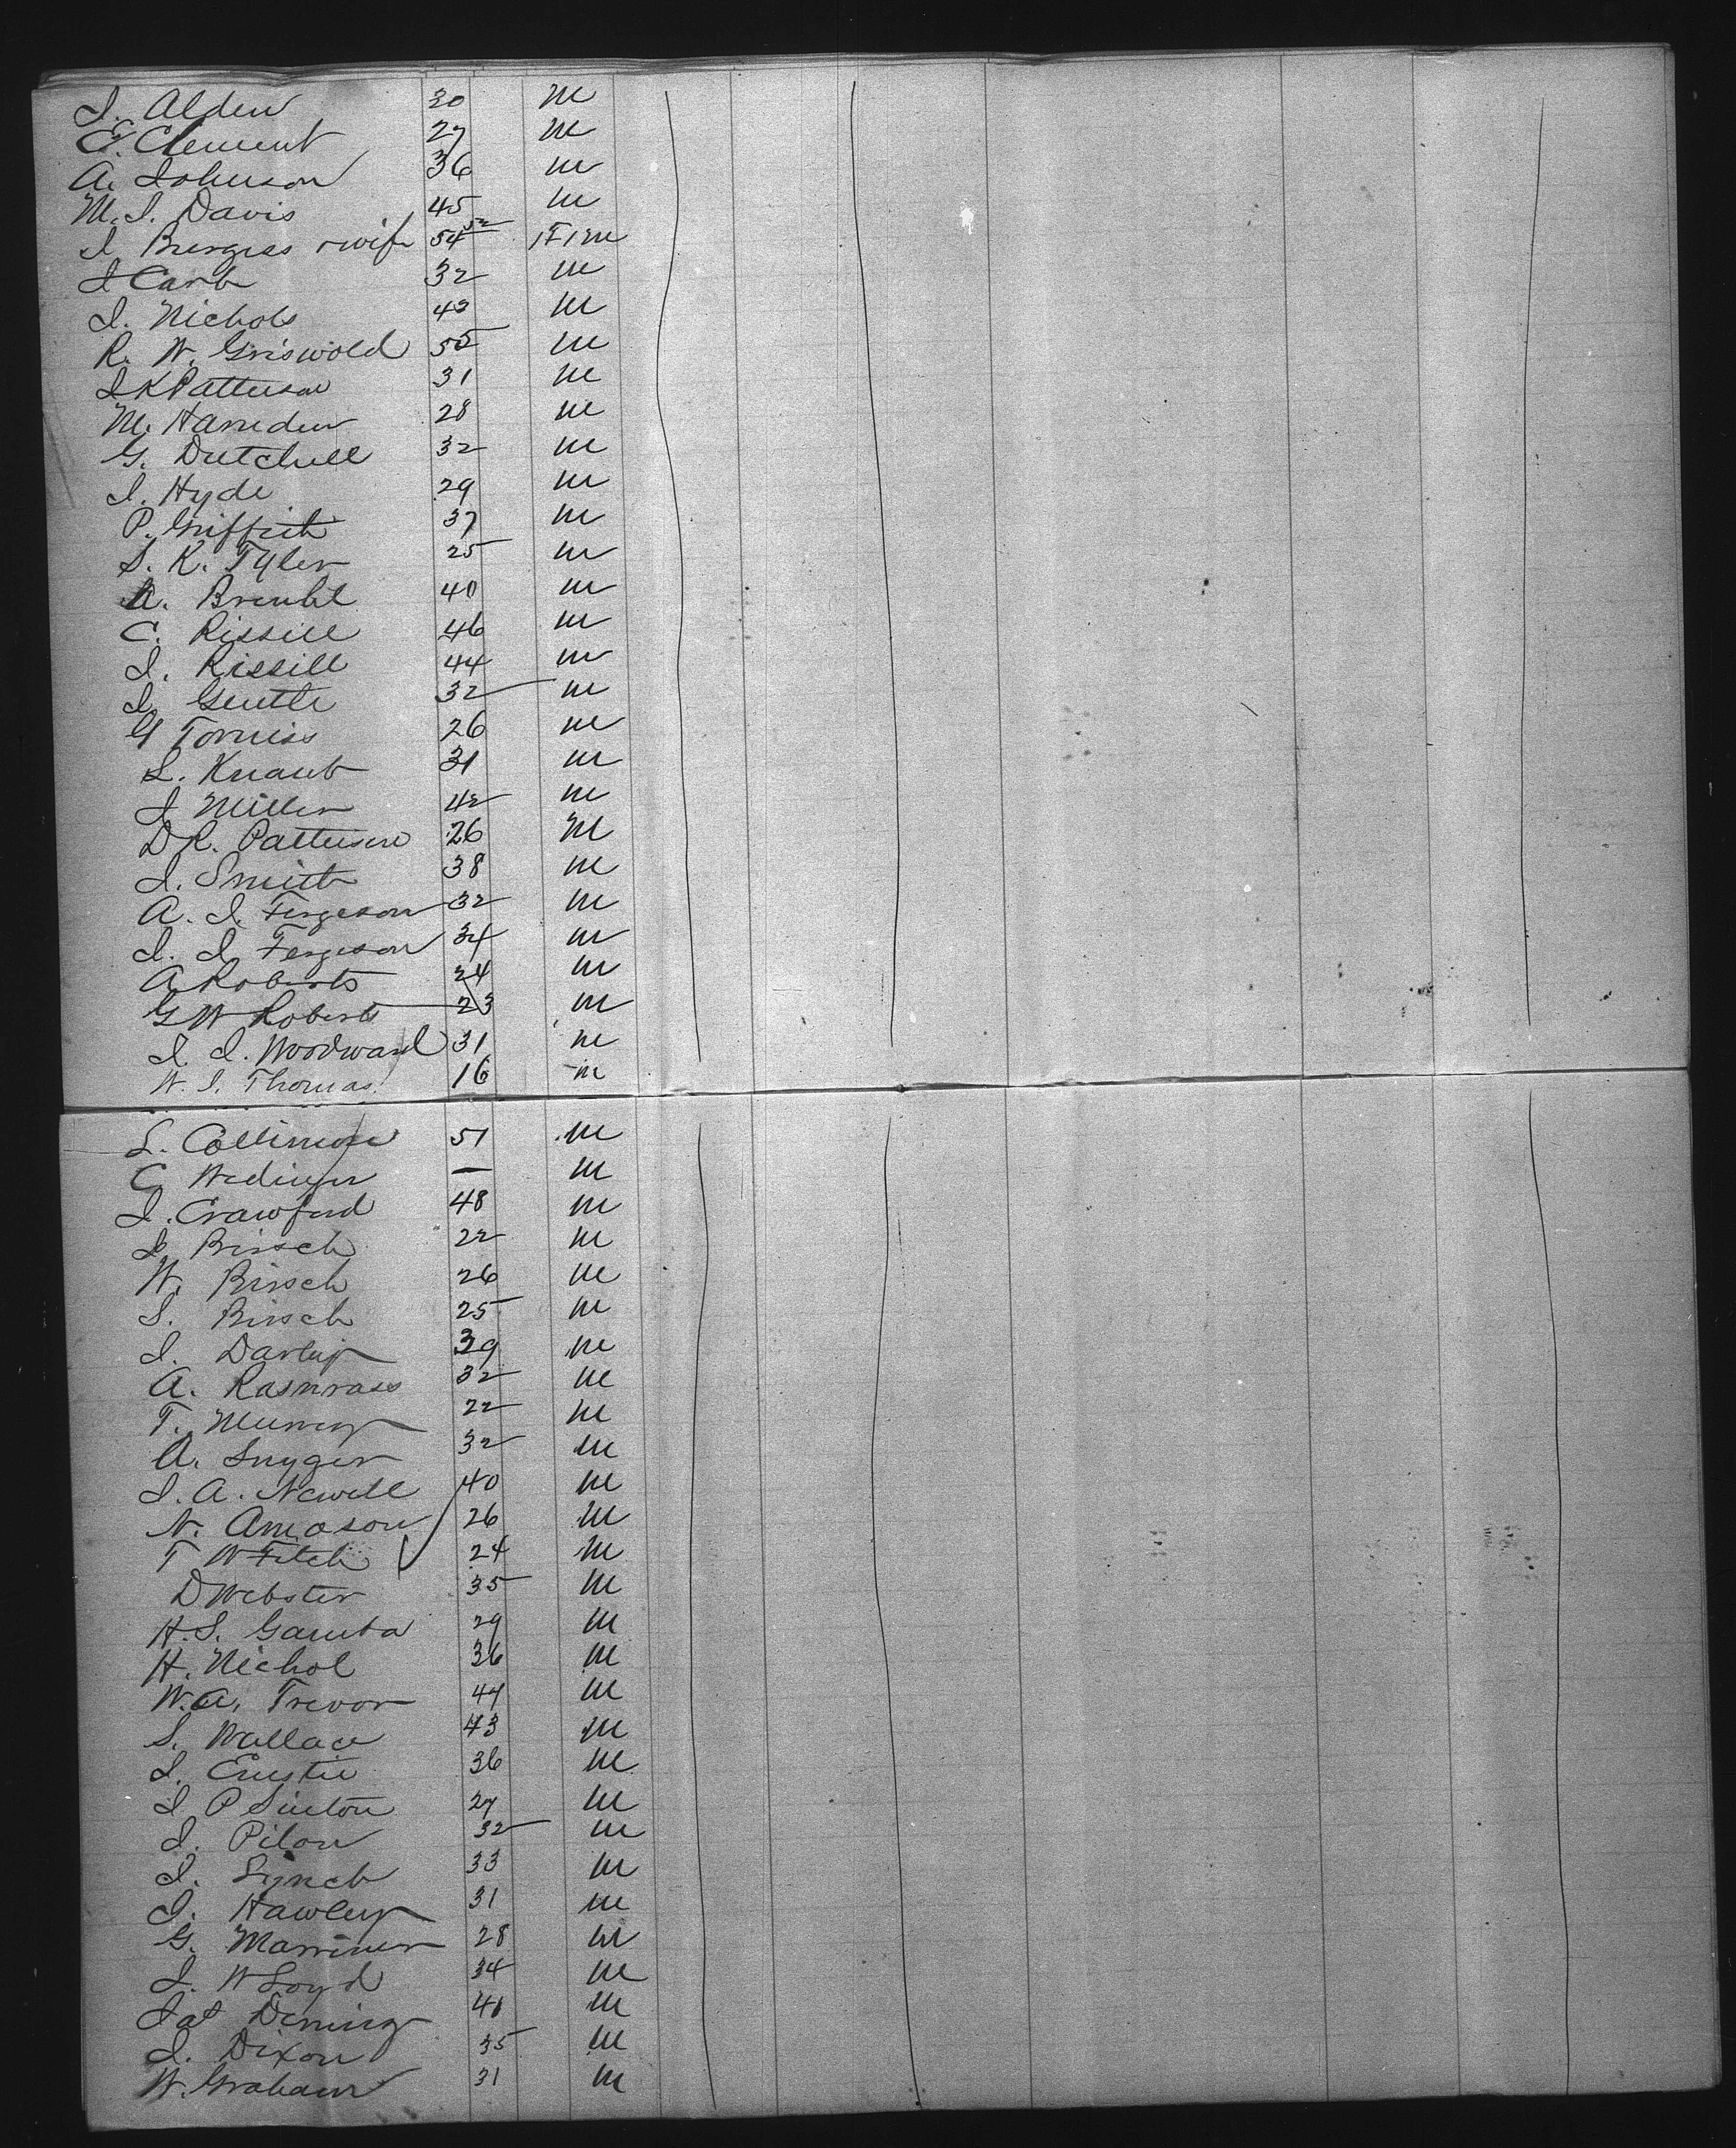 J. Alden 30 m
E. Clement 27 m
A. Johnson 36 m
M. J. Davis 45 m
J Burgess & wife 54 52 1F 1m
J Carb 32 m
J. Nichols 43 m
R. W. Griswold 55 m
J K Patterson 31 m
M. Harnden 28 m
G. Dutchell 32 m
J. Hyde 29 m
P. Griffith 37 m
S. K. Tyler 25 m
A. 40 m
C. Rissill 46 m
J. Rissill 44 m
J. Gentle 32 m
G Torniss 26 m
L. Knaub 31 m
J Miller 42 m
D R. Patterson 26 m
J. Smith 38 m
A. J. Fergeson 32 m
J. J. Fergeson 34 m
A Roberts 24 m
G W Roberts 23 m
J. J. Woodward 31 m
W. J. Thomas 16 m
L. Collimore 51 m
C — m
J. Crawford 48 m
J Birsch 22 m
W. Birsch 26 m
S. Birsch 25 m
J. 39 m
A. 32 m
T. Murray 22 m
A. Snyger 32 m
J. A. Newell 40 m
N. Amason 26 m
T W Fitch 24 m
D Webster 35 m
H. S. 29 m
H. Nichol 36 m
W. A. Trevor 47 m
S. Wallace 43 m
J. 36 m
J P Sinton 27 m
J. Pilon 32 m
J. Lynch 33 m
J. Hawley 31 m
G. Marriner 28 m
J. W Loyd 34 m
Jat Deming 41 m
J. Dixon 35 m
W. Graham 31 m